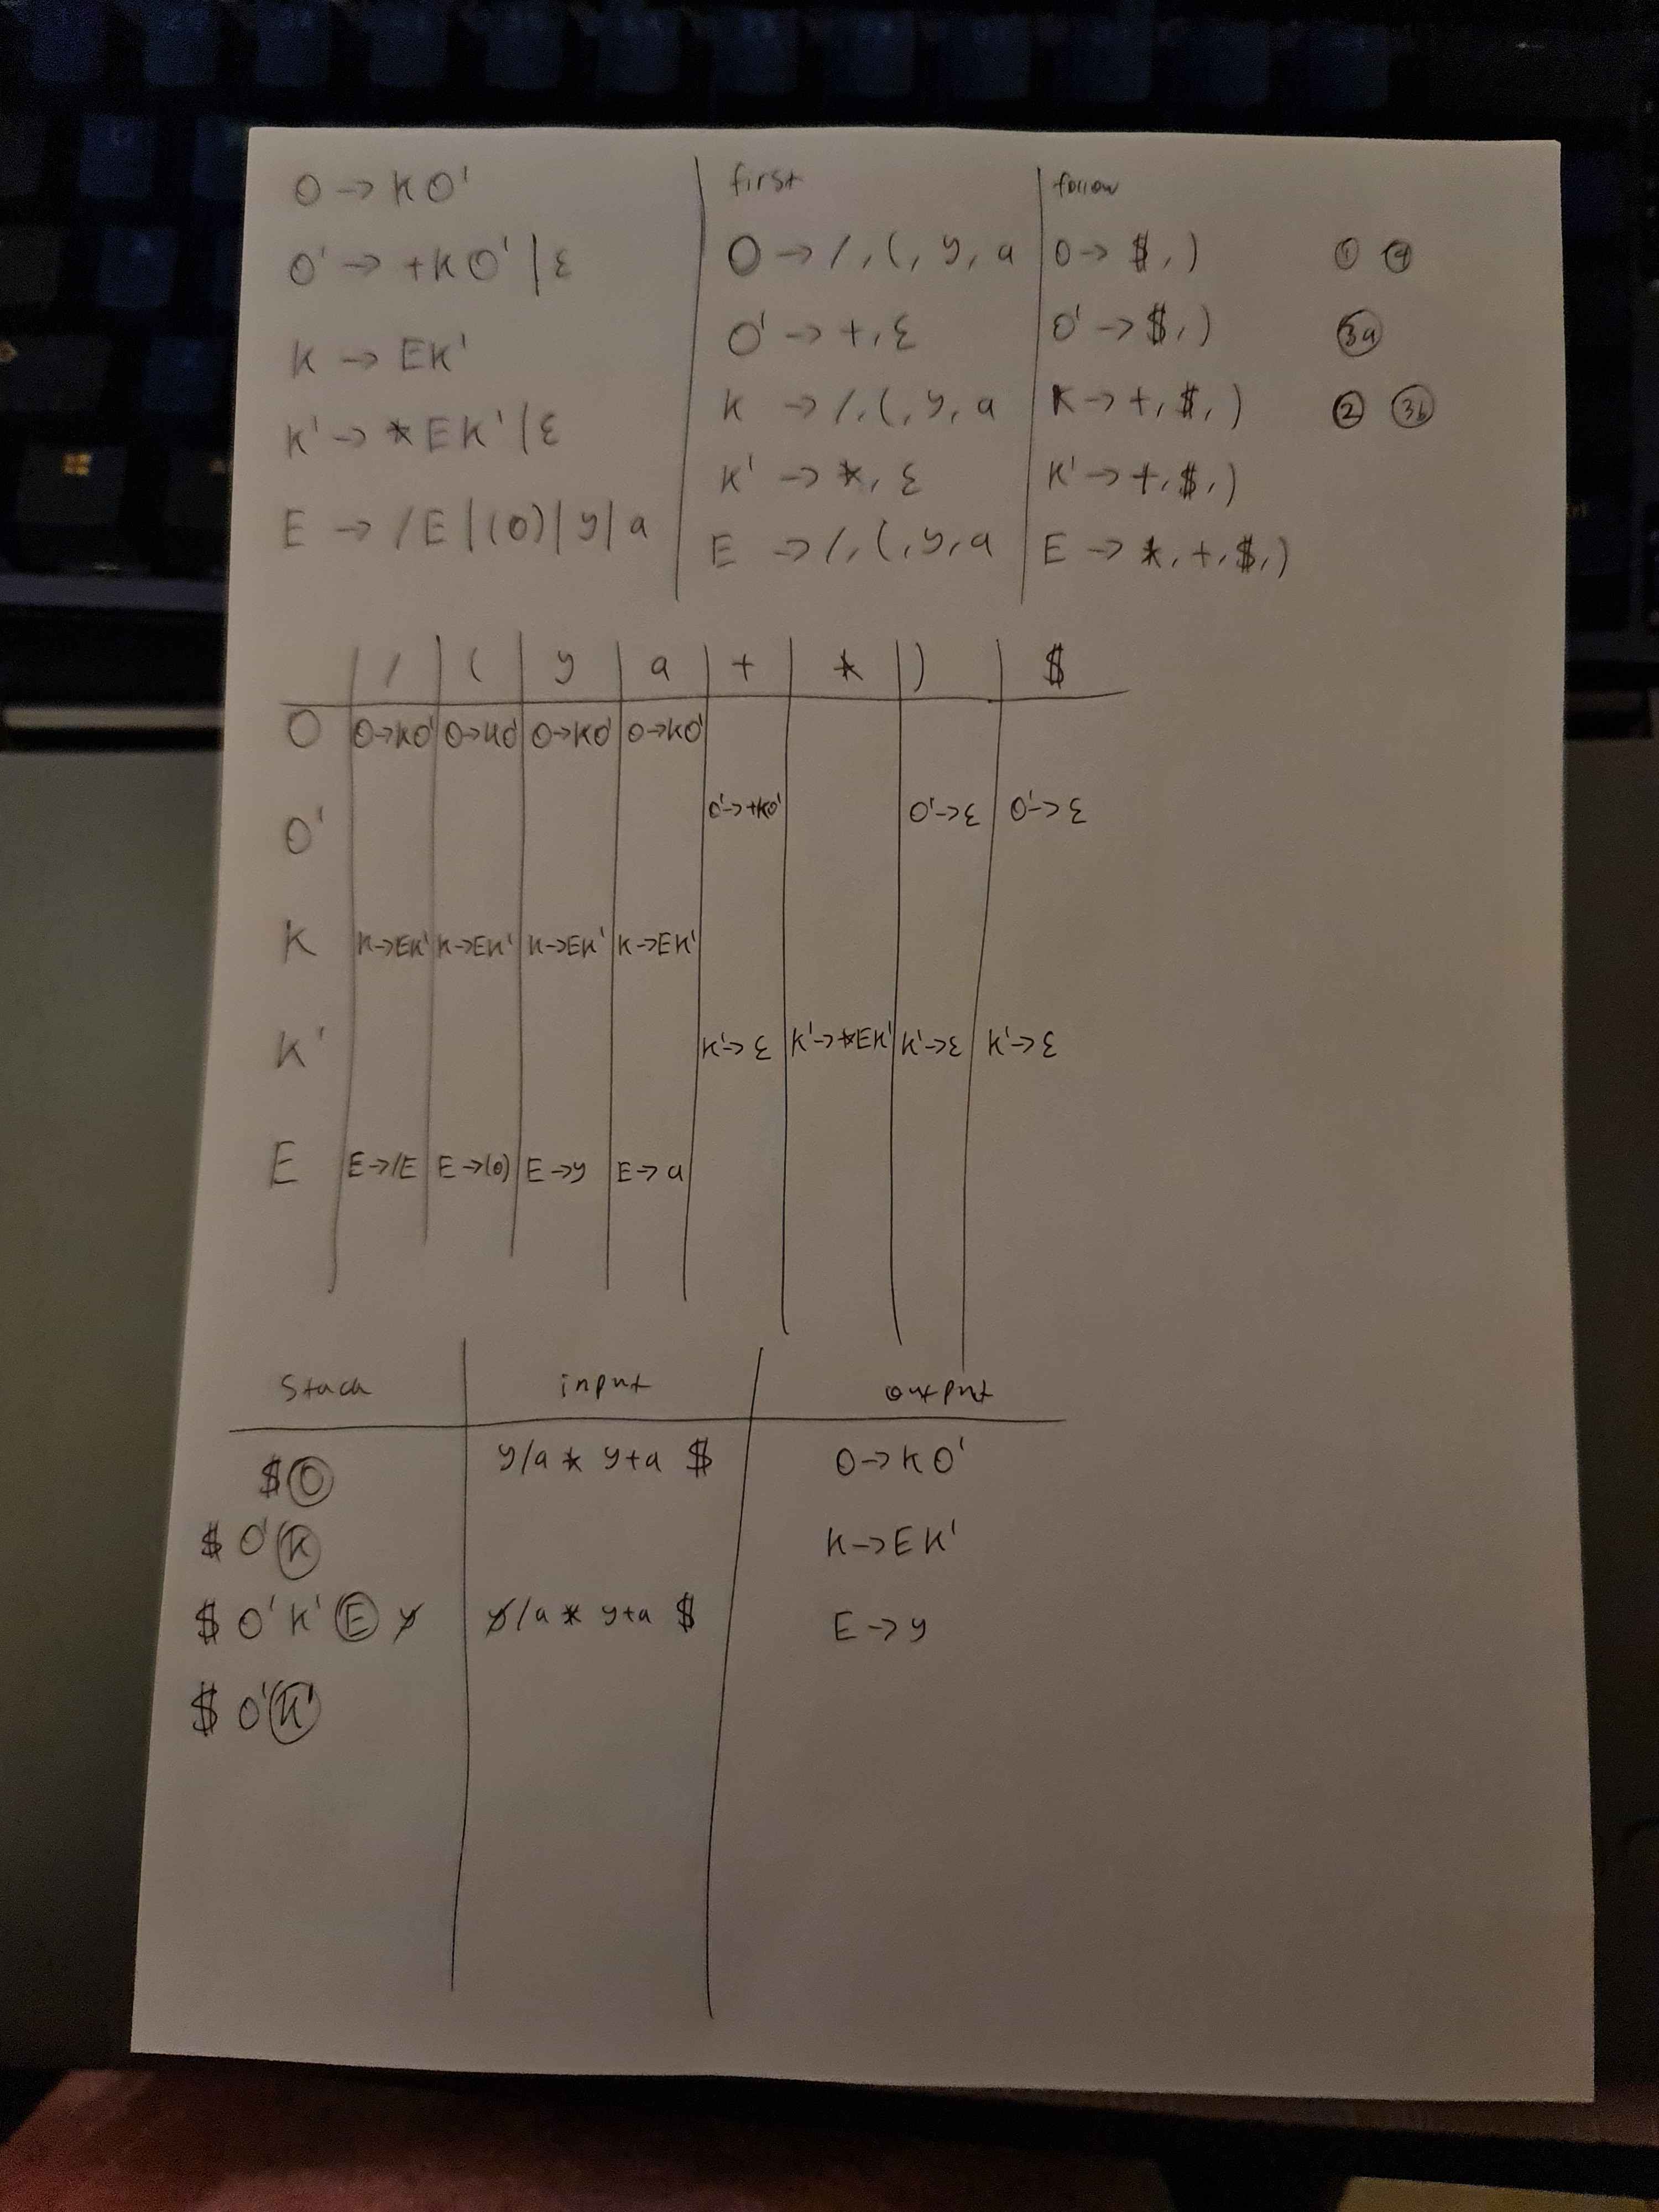 O → KO' first follow
O → /, (, y, a O → $, ) ① ④
O' → +KO' | ε
O' → +, ε O' → $, ) 3a
K → EK'
K → /, (, y, a K → +, $, ) ② 3b
K' → *EK' | ε
K' → *, ε K' → +, $, )
E → /E | (O) | y | a
E → /, (, y, a E → *, +, $, )
/ ( y a + * ) $
O O→KO' O→KO' O→KO' O→KO'
O' O'→+KO' O'→ε O'→ε
K K→EK' K→EK' K→EK' K→EK'
K' K'→ε K'→*EK' K'→ε K'→ε
E E→/E E→(O) E→y E→a
Stack input output
$O y/a * y+a $ O→KO'
$O'K K→EK'
$O'K'E y y/a * y+a $ E→y
$O'K'